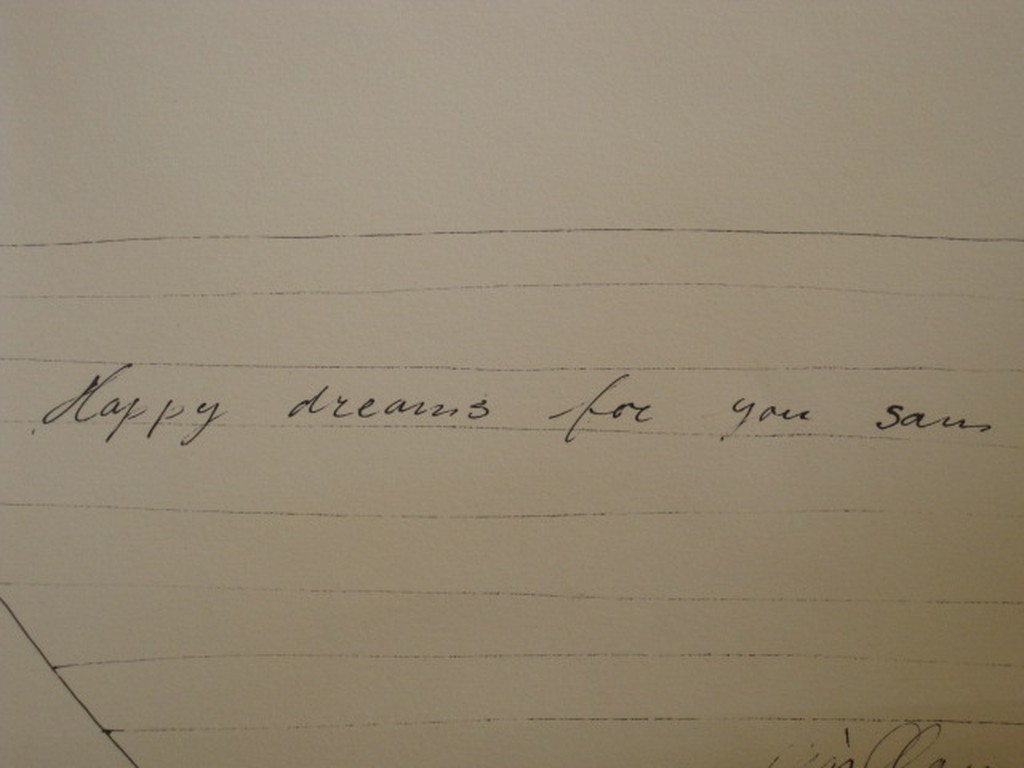 Happy dreams for you sam